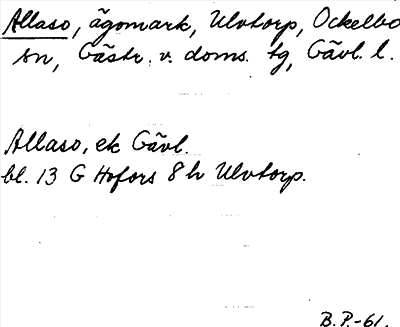 Allaso, ägomark, Ulvtorp, Ockelbo
sn, Gästr. v. doms. tg, Gävl. l.
Allaso, ek Gävl.
bl. 13 G Hofors 8 h Ulvtorp.
B.P.-61.